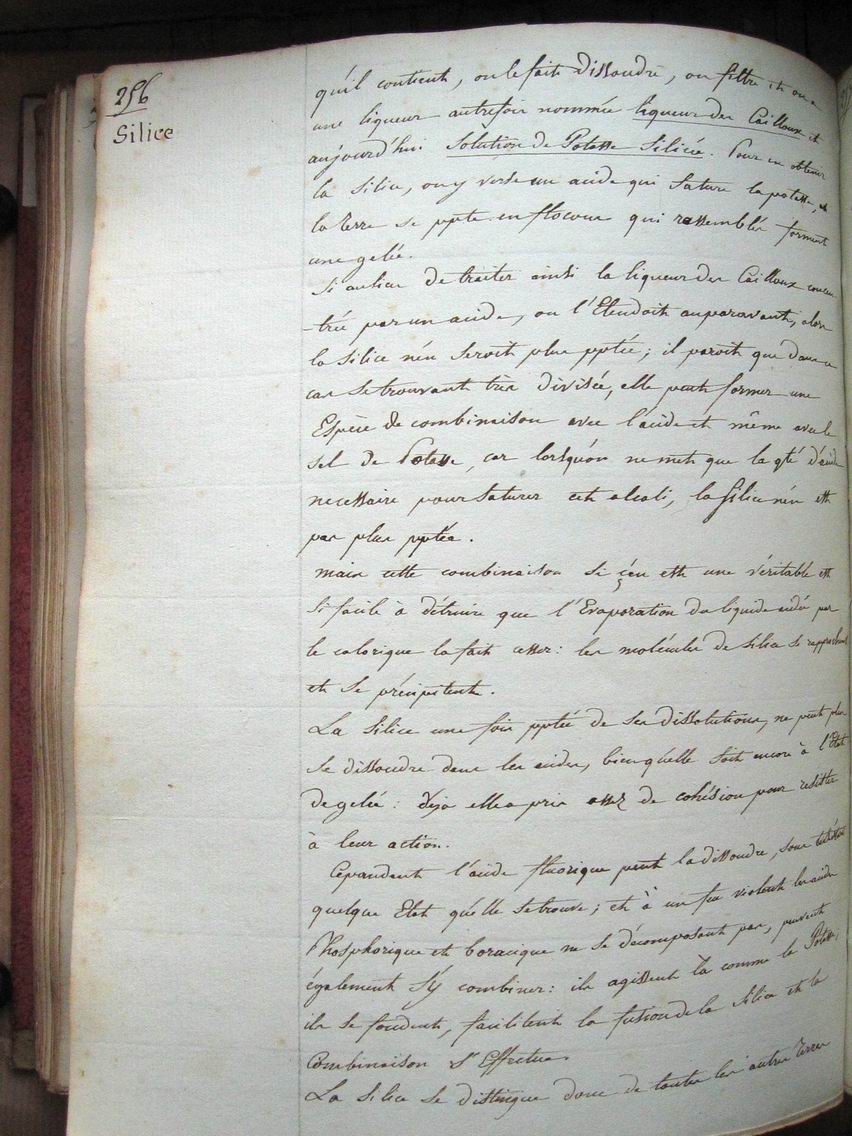 256
Silice
qu'il contient, on le fait dissoudre, on filtre et on a
une liqueur autrefois nommée liqueur des Cailloux et
aujourd'hui solution de Potasse Silicée. Pour en obtenir
la silice, on y verse un acide qui sature la potasse, et
la terre se ppte en flocons qui rassemblés forment
une gelée.
Si au lieu de traiter ainsi la liqueur des Cailloux concen
-trée par un acide, on l'Etendoit auparavant, alors
la silice n'en seroit plus pptée; il paroit que dans ce
cas se trouvant très divisée, elle peut former une
Espèce de combinaison avec l'acide et même avec le
sel de Potasse, car lorsqu'on ne met que la qté d'acide
necessaire pour saturer cet alcali, la Silice n'en est
pas plus pptée.
mais cette combinaison si ç'en est une véritable est
si facile à détruire que l'Evaporation du liquide aidée par
le calorique la fait cesser: les molécules de silice se rapprochent
et se précipitent.
La Silice une fois pptée de ses dissolutions, ne peut plus
se dissoudre dans les acides, bien qu'elle soit encore à l'Etat
de gelée: déja elle a pris assez de cohésion pour resister
à leur action.
Cependant l'acide fluorique peut la dissoudre, sous
quelque Etat qu'elle se trouve; et à un feu violent les acides
Phosphorique et boracique ne se décomposant pas, peuvent
également s'y combiner: ils agissent là comme la Potasse,
ils se fondent, facilitent la fusion de la silice et la
Combinaison s'Effectue.
La silice se distingue donc de toutes les autres terres